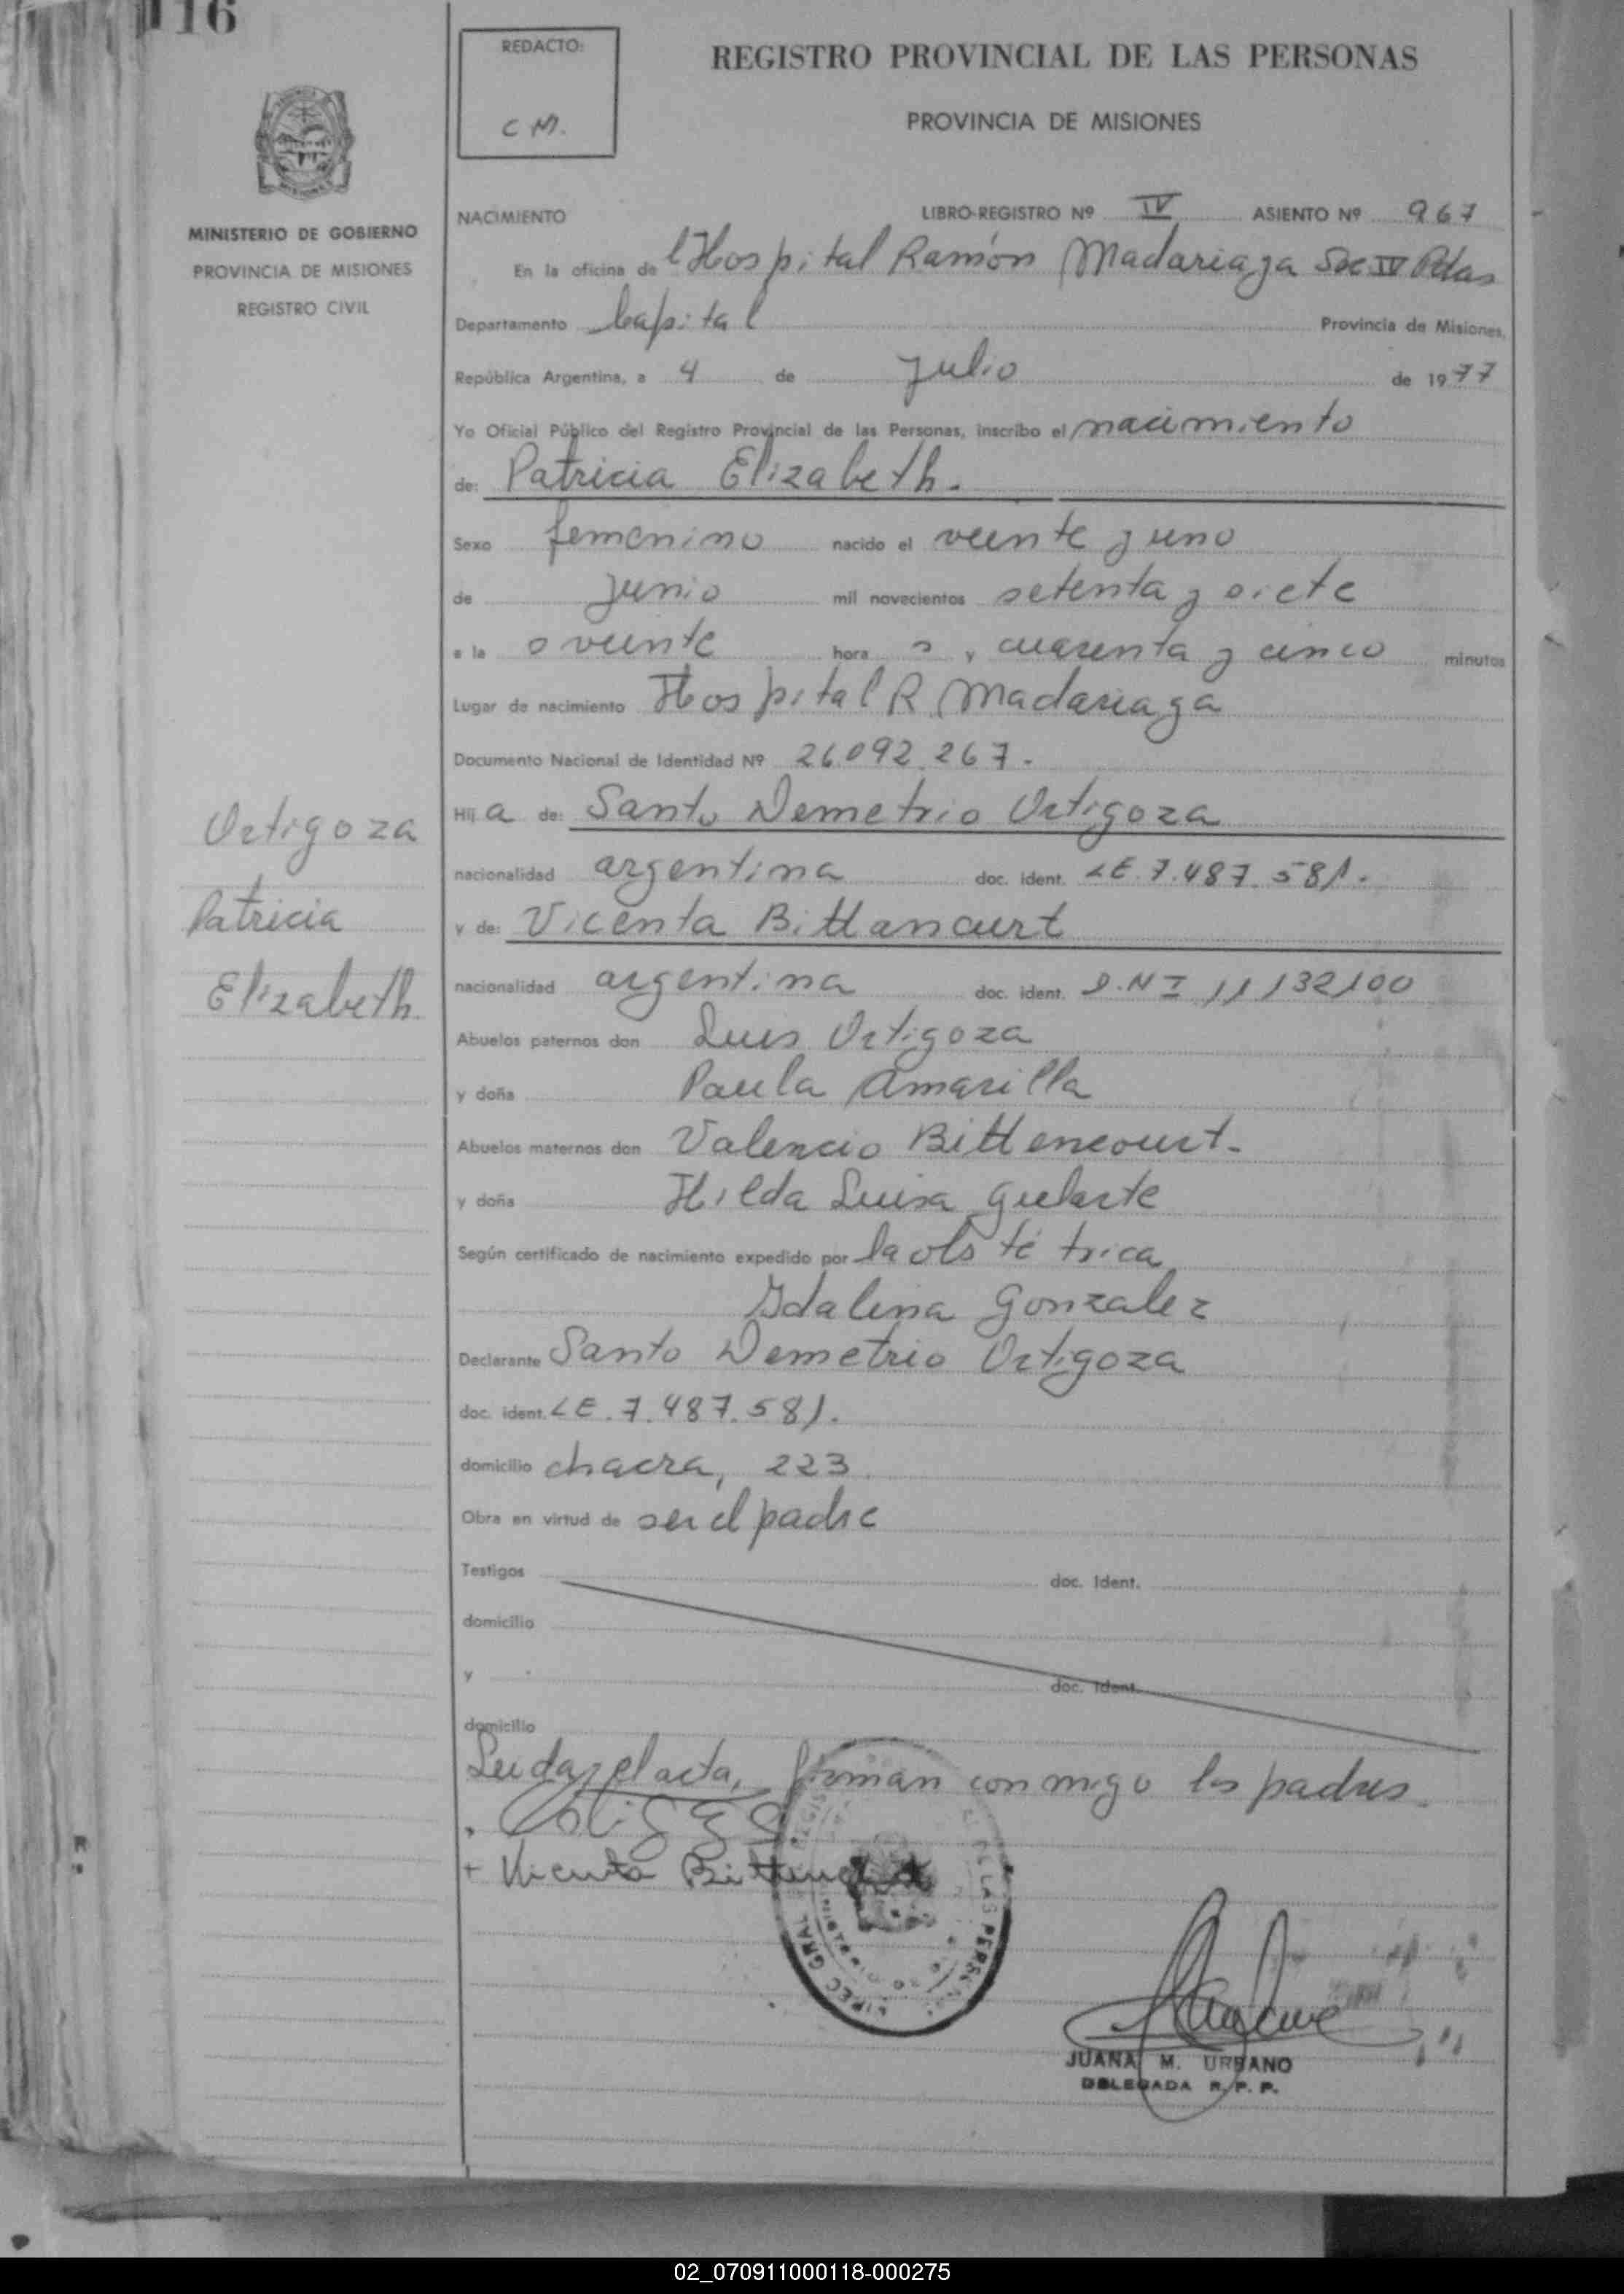 116
REDACTO:
C M.
REGISTRO PROVINCIAL DE LAS PERSONAS
PROVINCIA DE MISIONES
MINISTERIO DE GOBIERNO
PROVINCIA DE MISIONES
REGISTRO CIVIL
NACIMIENTO LIBRO-REGISTRO Nº IV ASIENTO Nº 967
En la oficina del Hospital Ramón Madariaga Sec IV Pdas
Departamento Capital Provincia de Misiones,
República Argentina, a 4 de Julio de 1977
Yo Oficial Público del Registro Provincial de las Personas, inscribo el nacimiento
de: Patricia Elizabeth.
Sexo femenino nacido el veinte y uno
de Junio mil novecientos setenta y siete
a las veinte horas y cuarenta y cinco minutos
Lugar de nacimiento Hospital R. Madariaga
Documento Nacional de Identidad Nº 26.092.267.
Hija de: Santo Demetrio Ortigoza
nacionalidad argentina doc. ident. LE. 7.487.581.
y de: Vicenta Bittancurt
nacionalidad argentina doc. ident. D.N I 11132100
Abuelos paternos don Luis Ortigoza
y doña Paula Amarilla
Abuelos maternos don Valencio Bittencourt.
y doña Hilda Luisa Gularte
Según certificado de nacimiento expedido por la obstétrica
Idalina Gonzalez
Declarante Santo Demetrio Ortigoza
doc. ident. LE. 7.487.581.
domicilio chacra, 223.
Obra en virtud de ser el padre
Testigos doc. Ident.
domicilio
y doc. Ident.
domicilio
Leida el acta, firman conmigo los padres.
Vicenta
JUANA M. URBANO
DELEGADA R. P. P.
Ortigoza
Patricia
Elizabeth.
02_070911000118-000275